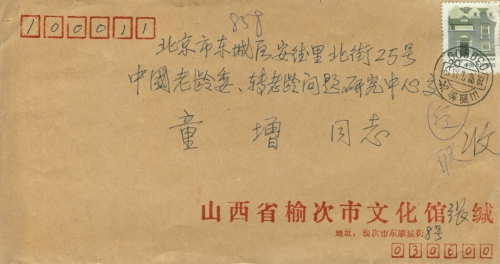 100011
858
北京市东城区安德里北街25号
中國老龄委、转老龄问题研究中心交
童增同志
收
山西省榆次市文化馆张缄
地址：榆次市东顺城街8号
030600